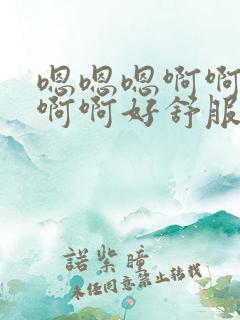 嗯嗯嗯啊啊
啊啊好舒服
諾紫瞳
未经同意禁止转载